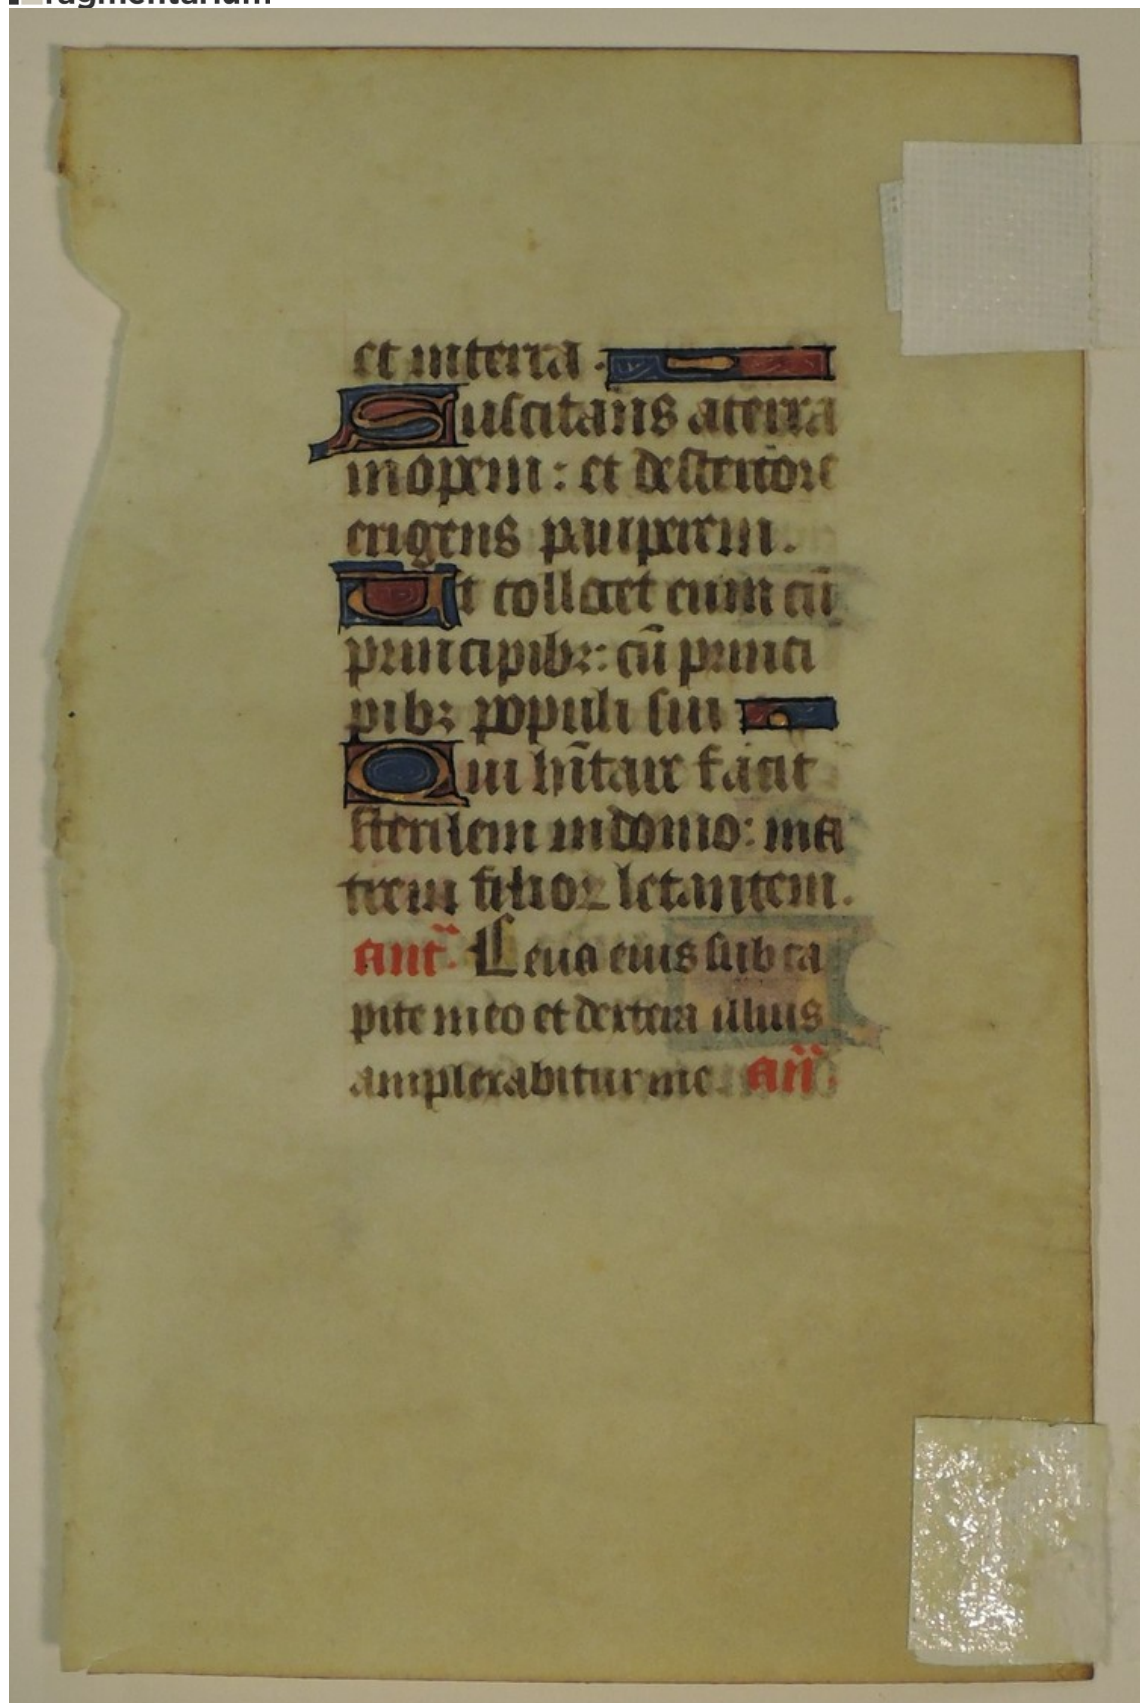 ragmentarium
et in terra .
Suscitans a terra
inopem : et de stercore
erigens pauperem .
Ut collocet eum cū
principibꝫ : cū princi
pibꝫ populi sui
Qui hītare facit
sterilem in domo : ma
trem filioꝝ letantem .
ant̄ . Leua eius sub ca
pite meo et dextera illius
amplexabitur me . an̄ .